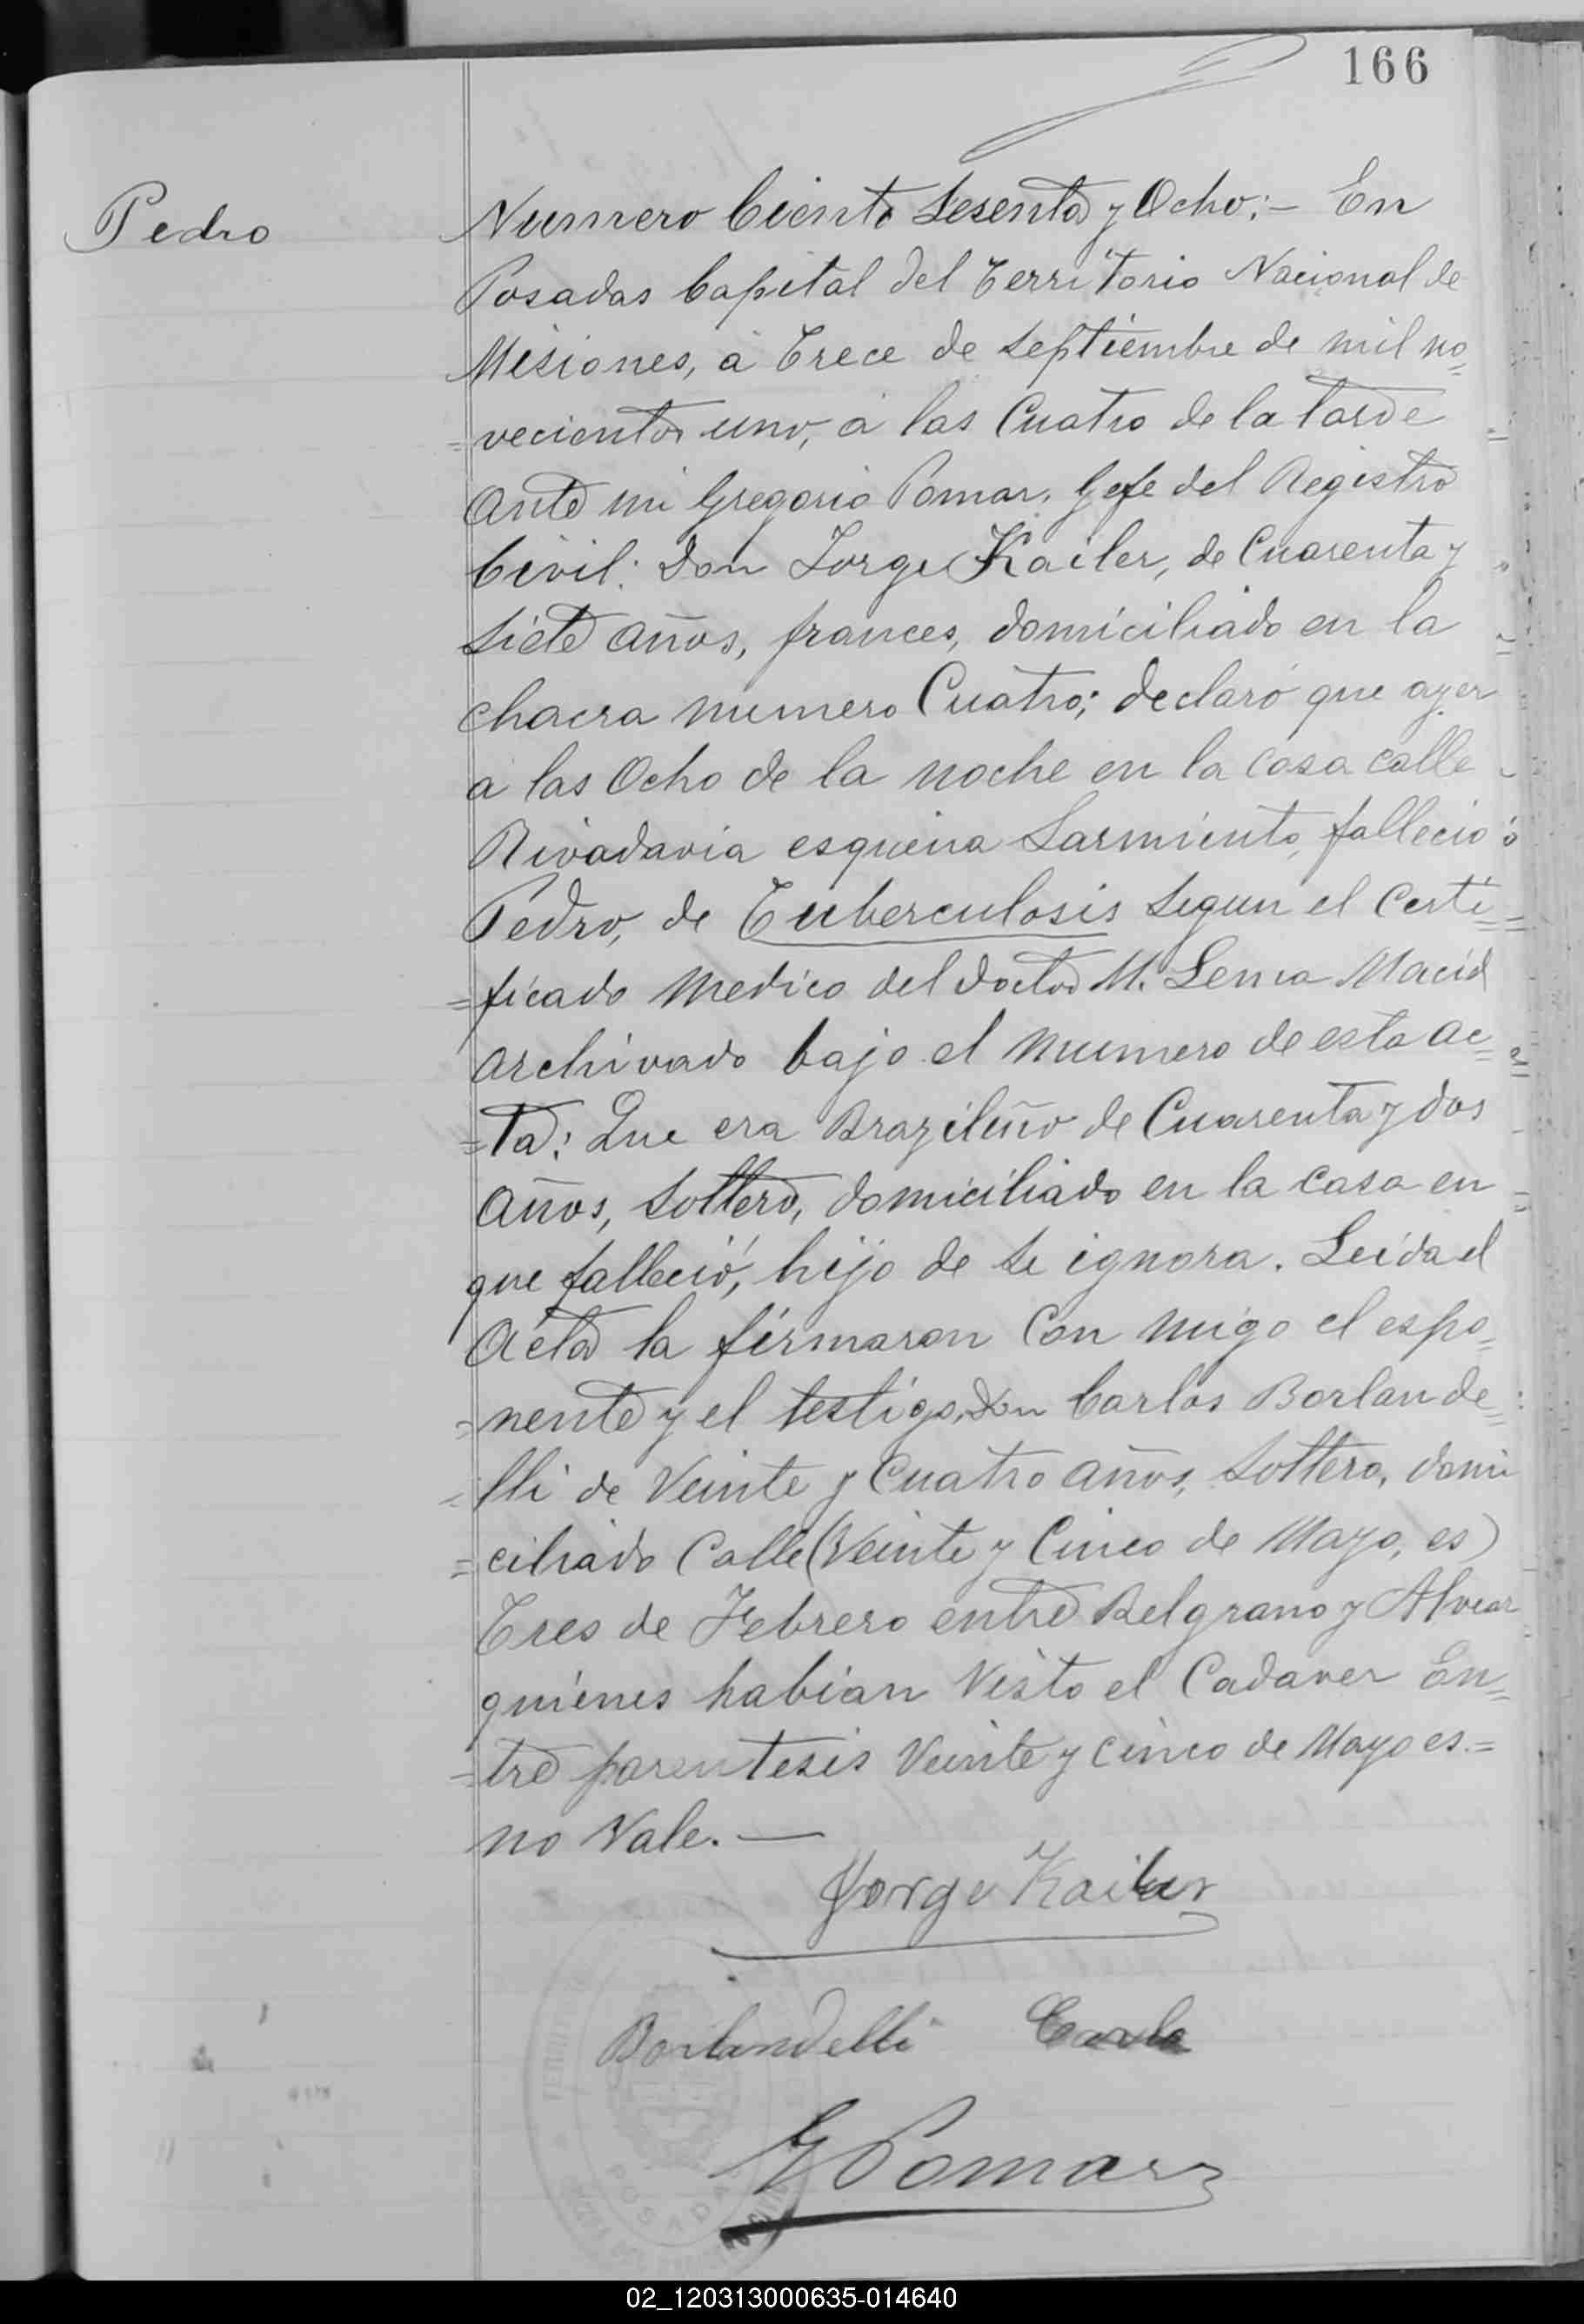 166
Pedro
Numero Ciento Sesenta y Ocho:- En
Posadas Capital del Territorio Nacional de
Misiones, á Trece de Septiembre de mil no=
=vecientos uno, á las Cuatro de la tarde
Ante mi Gregorio Pomar, Gefe del Registro
Civil: Don Jorge Kailer, de Cuarenta y
Siete años, frances, domiciliado en la
chacra numero Cuatro; declaró que ayer
a las Ocho de la noche en la casa calle
Rivadavia esquina Sarmiento, fallecio
Pedro, de Tuberculosis Segun el Certi=
=ficado Medico del doctor M.
Archivado bajo el numero de esta ac=
=ta: Que era Brazileño de Cuarenta y dos
Años, Soltero, domiciliado en la Casa en
que falleció, hijo de se ignora. Leida el
Acta la firmaron Con migo el espo=
=nente y el testigo, Don Carlos Borlande=
=lli de Veinte y Cuatro años, Soltero, domi
=ciliado Calle (Veinte y Cinco de Mayo, es)
Tres de Febrero entre Belgrano y Alvear
quienes habian Visto el Cadaver En=
=tre parentesis Veinte y Cinco de Mayo es.=
no Vale.—
Jorge Kailer
Borlandelli Carlo
G Pomar
POSADAS
02_120313000635-014640